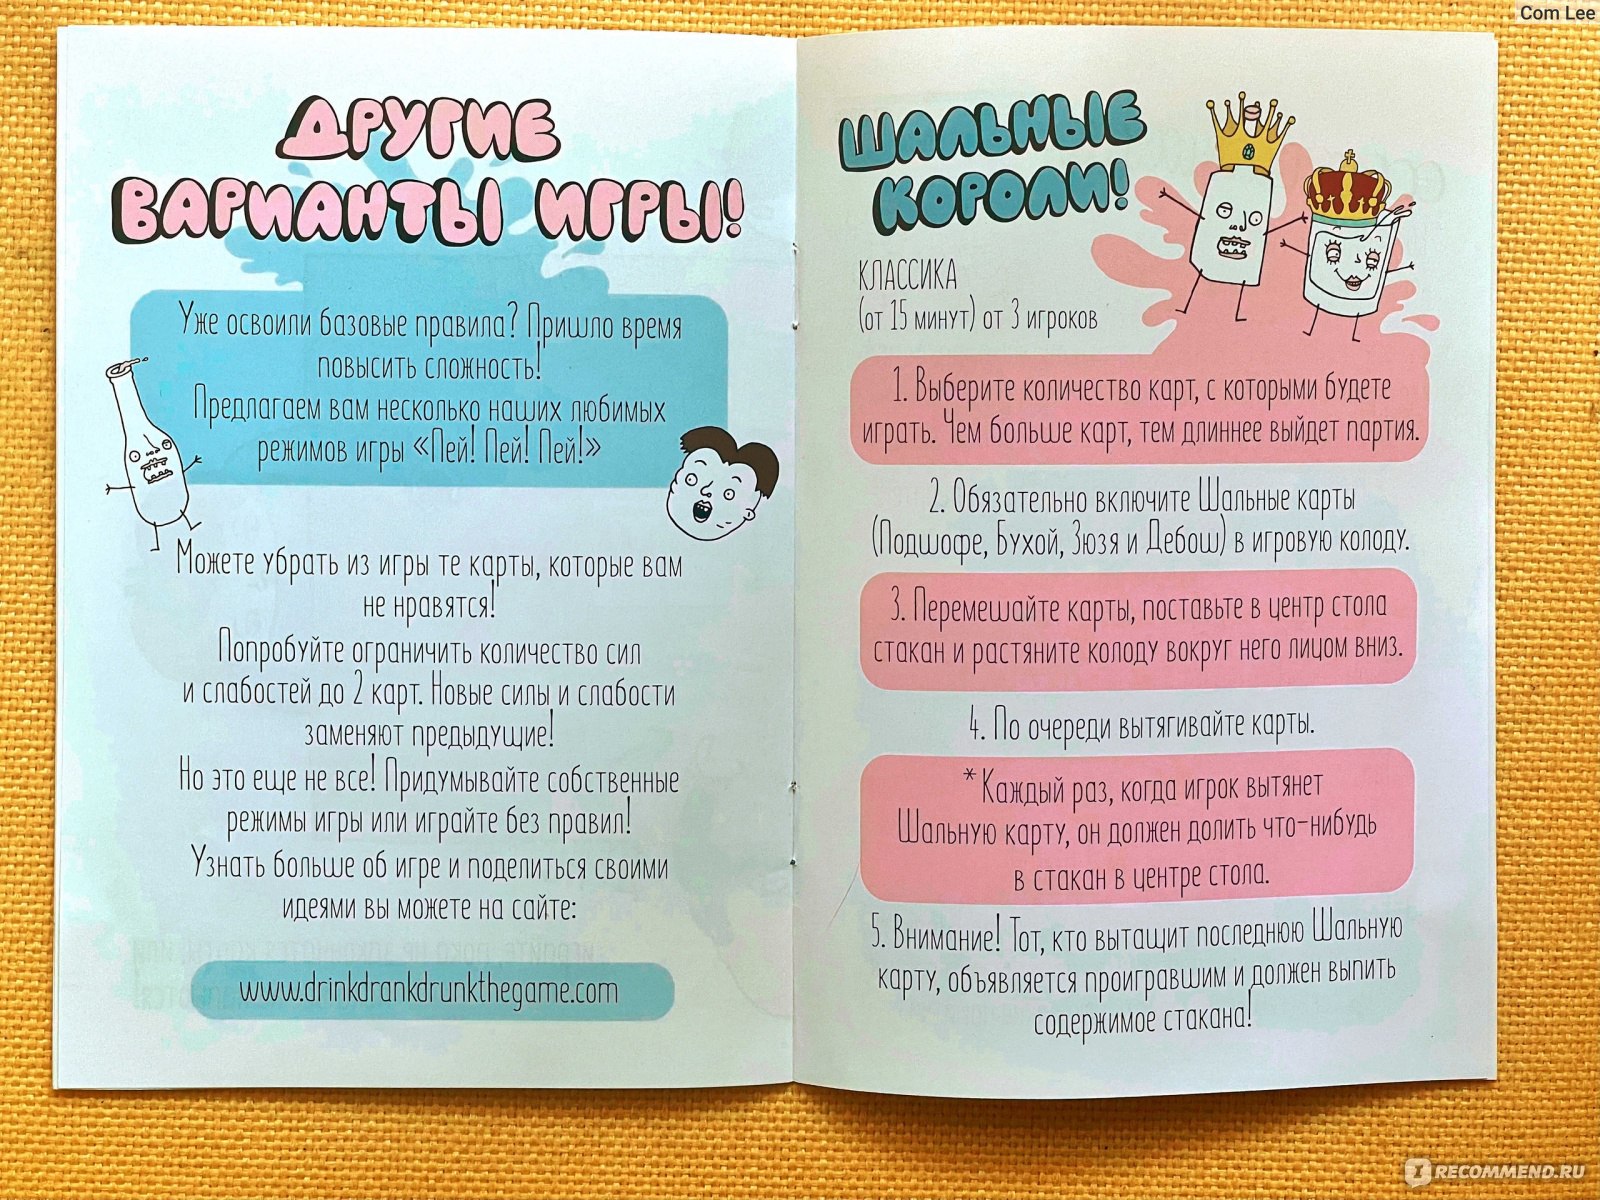 Com Lee
ДРУГИЕ
ВАРИАНТЫ ИГРЫ!
Уже освоили базовые правила? Пришло время
повысить сложность!
Предлагаем вам несколько наших любимых
режимов игры «Пей! Пей! Пей!»
Можете убрать из игры те карты, которые вам
не нравятся!
Попробуйте ограничить количество сил
и слабостей до 2 карт. Новые силы и слабости
заменяют предыдущие!
Но это еще не все! Придумывайте собственные
режимы игры или играйте без правил!
Узнать больше об игре и поделиться своими
идеями вы можете на сайте:
www.drinkdrankdrunkthegame.com
ШАЛЬНЫЕ
КОРОЛИ!
КЛАССИКА
(от 15 минут) от 3 игроков
1. Выберите количество карт, с которыми будете
играть. Чем больше карт, тем длиннее выйдет партия.
2. Обязательно включите Шальные карты
(Подшофе, Бухой, Зюзя и Дебош) в игровую колоду.
3. Перемешайте карты, поставьте в центр стола
стакан и растяните колоду вокруг него лицом вниз.
4. По очереди вытягивайте карты.
* Каждый раз, когда игрок вытянет
Шальную карту, он должен долить что-нибудь
в стакан в центре стола.
5. Внимание! Тот, кто вытащит последнюю Шальную
карту, объявляется проигравшим и должен выпить
содержимое стакана!
RECOMMEND.RU